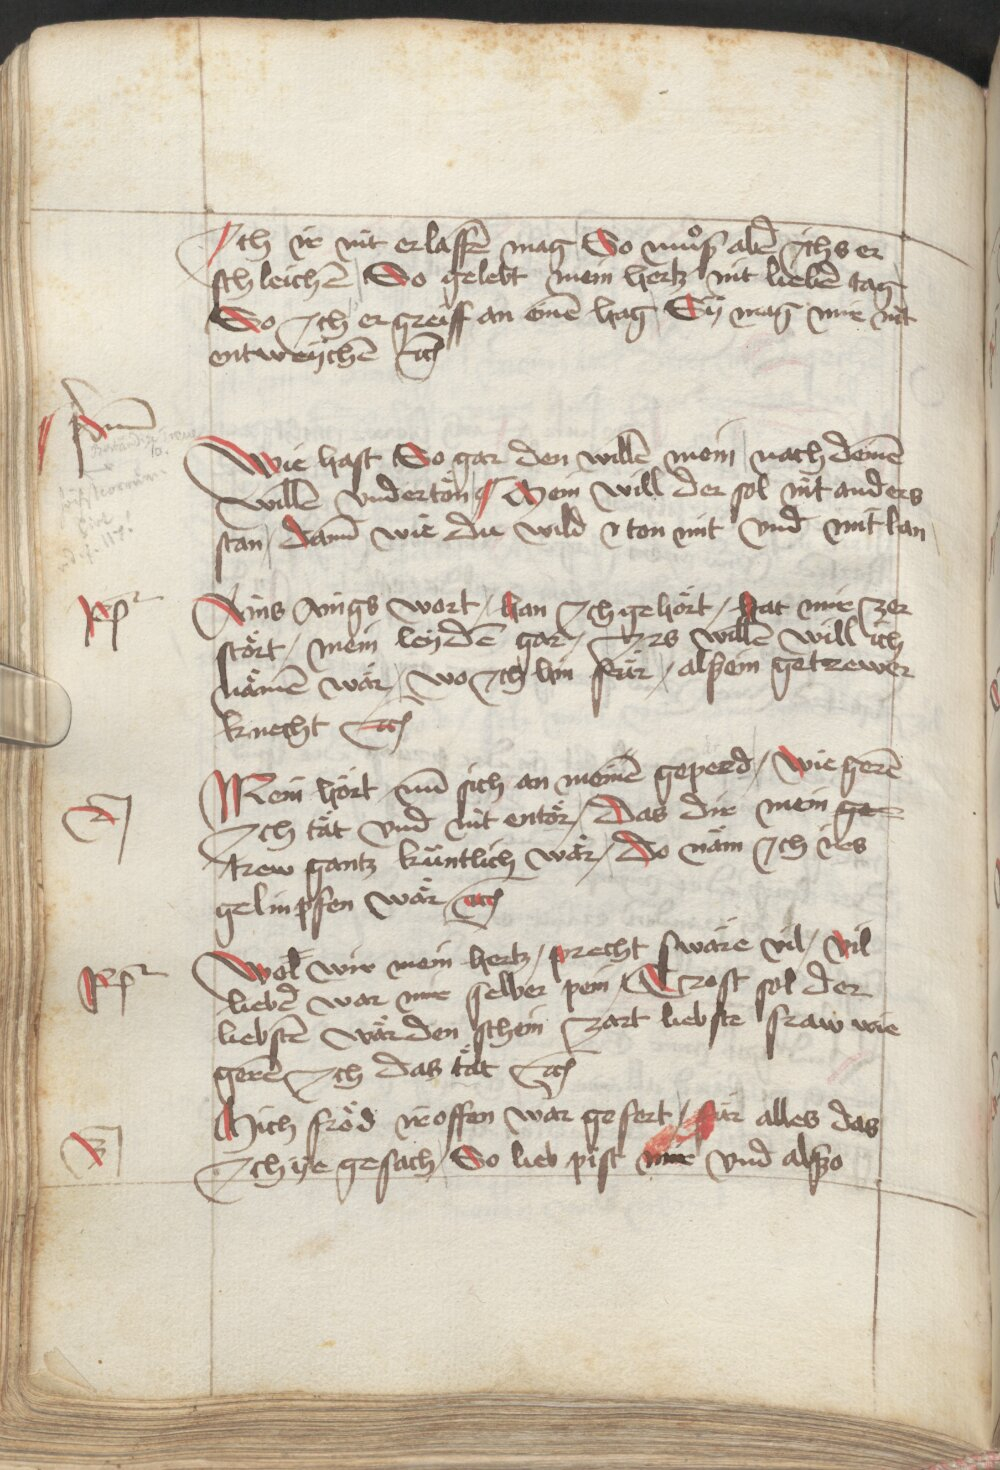 Ich ir nit erlassen mag So muͦß aber ichs er
schleichen So gelebt mein hertz nit lieben tag
So Ich ergreiff an einē hag Sy mag mir nit
entweÿchen etc
Wie hast So gar den willē mein nach deinē
willē vndertön Mein will der sol nit anders
stan / dann wie du wild ton mit vnd mit lan
Rpͣ
Ains Aings wort / han Ich gehört / hat mir zer
stört / mein leÿdē gar / Irs willē will ich
nämē war / wo Ich bin fär / alß ein getrewer
knecht etc
Mein hört nū sich an meinē geperd / wie gerē
Ich tät vnd nit entör / Das dir mein ge-
trew gantz küntlich wär / do näm Ich
gelimpfen wär etc
2
Rpͣ
Wol wir mein hertz / precht swäre vil / vil
lieber war mir selber pein / Trost sol der
liebstē wär den schein zart liebste fraw wie
gerē Ich das tät etc
Mich fröd ir offen war gefert / für alles das
Ich ÿe gesach / So lieb pist mir vnd alßo
3